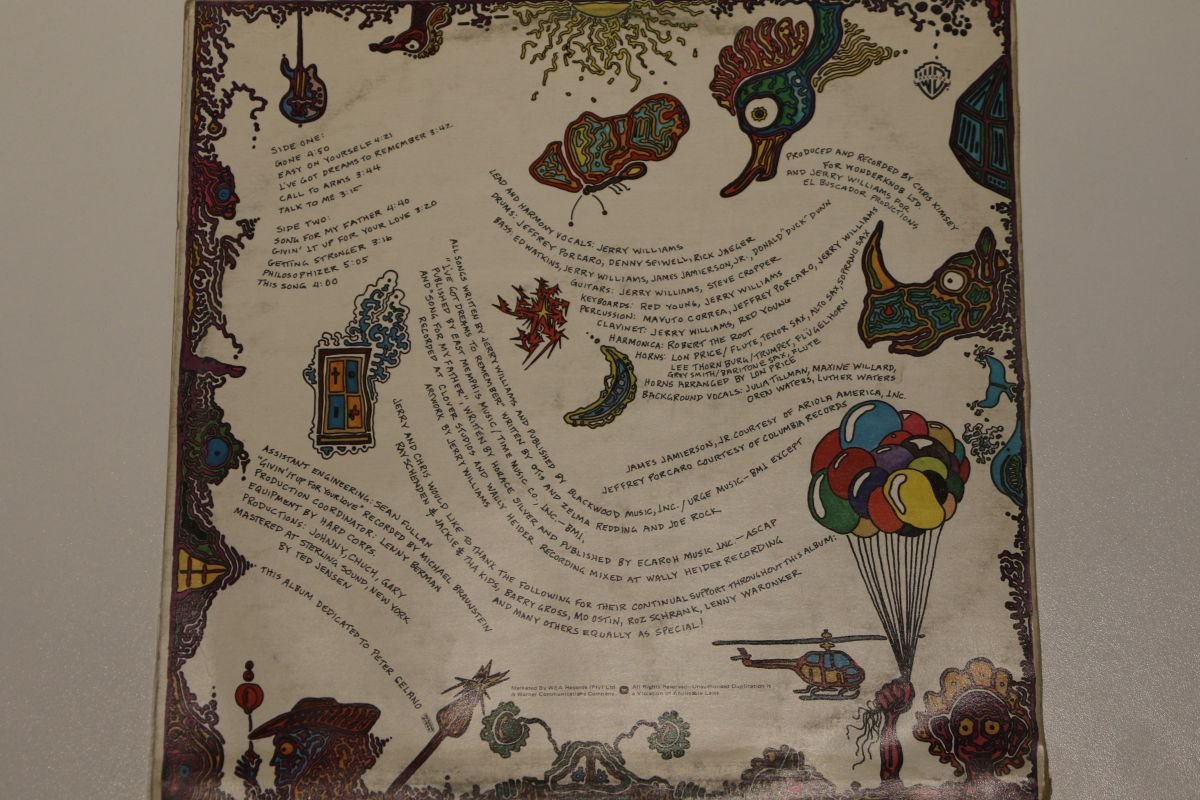 SIDE ONE:
GONE 4:50
EASY ON YOURSELF 4:21
I'VE GOT DREAMS TO REMEMBER 3:42
CALL TO ARMS 3:44
TALK TO ME 3:15
SIDE TWO:
SONG FOR MY FATHER 4:40
GIVIN' IT UP FOR YOUR LOVE 3:20
GETTING STRONGER 3:16
PHILOSOPHIZER 5:05
THIS SONG 4:00
PRODUCED AND RECORDED BY CHRIS KIMSEY
FOR WONDERKNOB LTD.
AND JERRY WILLIAMS FOR
EL BUSCADOR PRODUCTIONS
LEAD AND HARMONY VOCALS: JERRY WILLIAMS
DRUMS: JEFFREY PORCARO, DENNY SEIWELL, RICK JAEGER
BASS: ED WATKINS, JERRY WILLIAMS, JAMES JAMIERSON, JR., DONALD "DUCK" DUNN
GUITARS: JERRY WILLIAMS, STEVE CROPPER
KEYBOARDS: RED YOUNG, JERRY WILLIAMS
PERCUSSION: MAYUTO CORREA, JEFFREY PORCARO, JERRY WILLIAMS
CLAVINET: JERRY WILLIAMS, RED YOUNG
HARMONICA: ROBERT THE ROOT
HORNS: LON PRICE/FLUTE, TENOR SAX, ALTO SAX, SOPRANO SAX
LEE THORNBURG/TRUMPET, FLÜGEL HORN
GREY SMITH/BARITONE SAX, FLUTE
HORNS ARRANGED BY LON PRICE
BACKGROUND VOCALS: JULIA TILLMAN, MAXINE WILLARD,
OREN WATERS, LUTHER WATERS
JAMES JAMIERSON, JR. COURTESY OF ARIOLA AMERICA, INC.
JEFFREY PORCARO COURTESY OF COLUMBIA RECORDS
ALL SONGS WRITTEN BY JERRY WILLIAMS AND PUBLISHED BY BLACKWOOD MUSIC, INC./URGE MUSIC-BMI EXCEPT
"I'VE GOT DREAMS TO REMEMBER" WRITTEN BY OTIS AND ZELMA REDDING AND JOE ROCK
PUBLISHED BY EAST MEMPHIS MUSIC/TIME MUSIC CO., INC.-BMI,
AND "SONG FOR MY FATHER" WRITTEN BY HORACE SILVER AND PUBLISHED BY ECAROH MUSIC INC-ASCAP
RECORDED AT CLOVER STUDIOS AND WALLY HEIDER RECORDING MIXED AT WALLY HEIDER RECORDING
ARTWORK BY JERRY WILLIAMS
JERRY AND CHRIS WOULD LIKE TO THANK THE FOLLOWING FOR THEIR CONTINUAL SUPPORT THROUGHOUT THIS ALBUM:
RAY SCHENDEN & JACKIE & THA KIDS, BARRY GROSS, MO OSTIN, ROZ SCHRANK, LENNY WARONKER
AND MANY OTHERS EQUALLY AS SPECIAL!
ASSISTANT ENGINEERING: SEAN FULLAN
"GIVIN' IT UP FOR YOUR LOVE" RECORDED BY MICHAEL BRAUNSTEIN
PRODUCTION COORDINATOR: LENNY BERMAN
EQUIPMENT BY HARD CORPS.
PRODUCTIONS: JOHNNY, CHUCH, GARY
MASTERED AT STERLING SOUND, NEW YORK
BY TED JENSEN
THIS ALBUM DEDICATED TO PETER CELANO
Marketed By WEA Records (Pty) Ltd
A Warner Communications Company
All Rights Reserved-Unauthorised Duplication is
a Violation of Applicable Laws